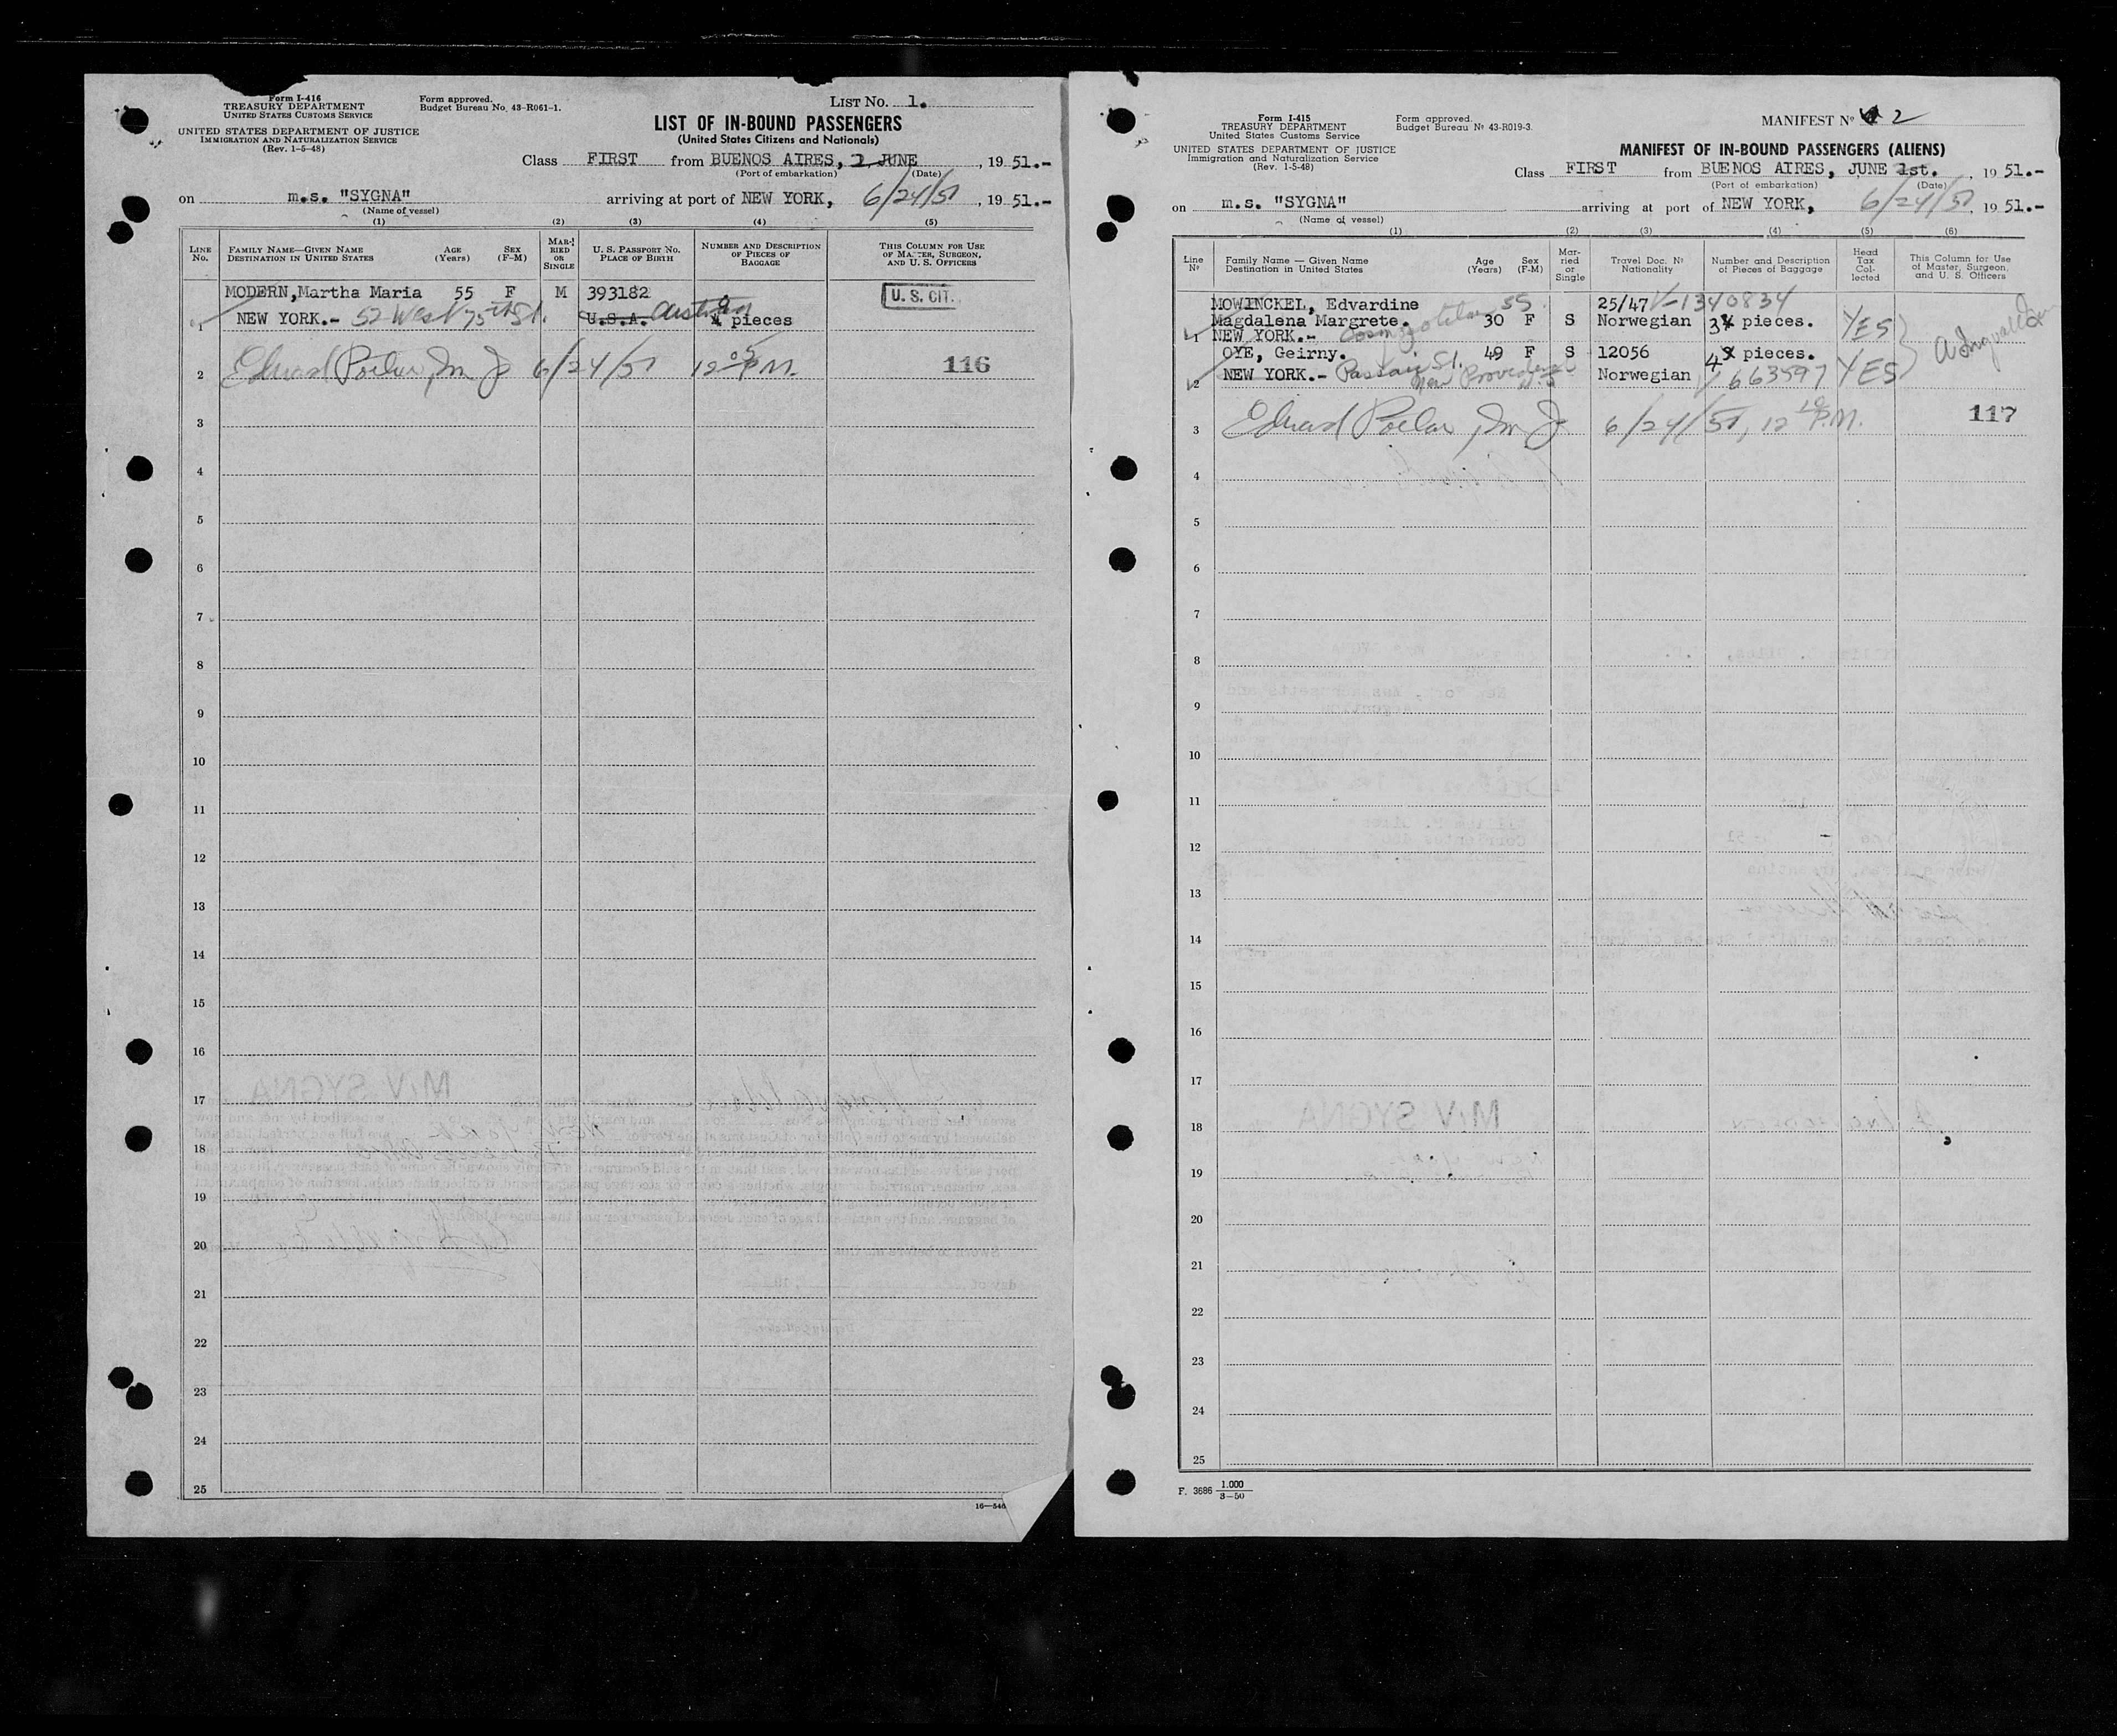 Form I-416
TREASURY DEPARTMENT
UNITED STATES CUSTOMS SERVICE
UNITED STATES DEPARTMENT OF JUSTICE
IMMIGRATION AND NATURALIZATION SERVICE
(Rev. 1-5-48)
Form approved.
Budget Bureau No. 43-R061-1.
LIST No. 1.
LIST OF IN-BOUND PASSENGERS
(United States Citizens and Nationals)
Class FIRST from BUENOS AIRES, 2 JUNE, 1951.-
(Port of embarkation) (Date)
on m.s. "SYGNA" arriving at port of NEW YORK, 6/24/51, 1951.-
(Name of vessel)
(1) (2) (3) (4) (5)
LINE No. FAMILY NAME—GIVEN NAME DESTINATION IN UNITED STATES AGE (Years) SEX (F-M) MARRIED OR SINGLE U. S. PASSPORT NO. PLACE OF BIRTH NUMBER AND DESCRIPTION OF PIECES OF BAGGAGE THIS COLUMN FOR USE OF MASTER, SURGEON, AND U. S. OFFICERS
MODERN,Martha Maria 55 F M 393182 U. S. CIT.
1 NEW YORK.- 52 West 75th St. U.S.A. Austria 4 pieces
2 6/24/51 12 05 P.M. 116
3
4
5
6
7
8
9
10
11
12
13
14
15
16
17
18
19
20
21
22
23
24
25
16—546
Form I-415
TREASURY DEPARTMENT
United States Customs Service
UNITED STATES DEPARTMENT OF JUSTICE
Immigration and Naturalization Service
(Rev. 1-5-48)
Form approved.
Budget Bureau Nº 43-R019-3.
MANIFEST Nº 2
MANIFEST OF IN-BOUND PASSENGERS (ALIENS)
Class FIRST from BUENOS AIRES, JUNE 1st., 1951.-
(Port of embarkation) (Date)
on m.s. "SYGNA" arriving at port of NEW YORK, 6/24/51, 1951.-
(Name of vessel)
(1) (2) (3) (4) (5) (6)
Line Nº Family Name — Given Name Destination in United States Age (Years) Sex (F-M) Married or Single Travel Doc. Nº Nationality Number and Description of Pieces of Baggage Head Tax Collected This Column for Use of Master, Surgeon, and U. S. Officers
MOWINCKEL, Edvardine SS 25/47 V-1340834
Magdalena Margrete. 30 F S Norwegian 3 pieces. YES
1 NEW YORK.- Cosmopolitan
OYE, Geirny. 49 F S 12056 4 pieces.
2 NEW YORK.- Passaic St. New Providence N.J. Norwegian V 663597 YES
3 6/24/51, 12 10 P.M. 117
4
5
6
7
8
9
10
11
12
13
14
15
16
17
18
19
20
21
22
23
24
25
F. 3686 1.000
3-50